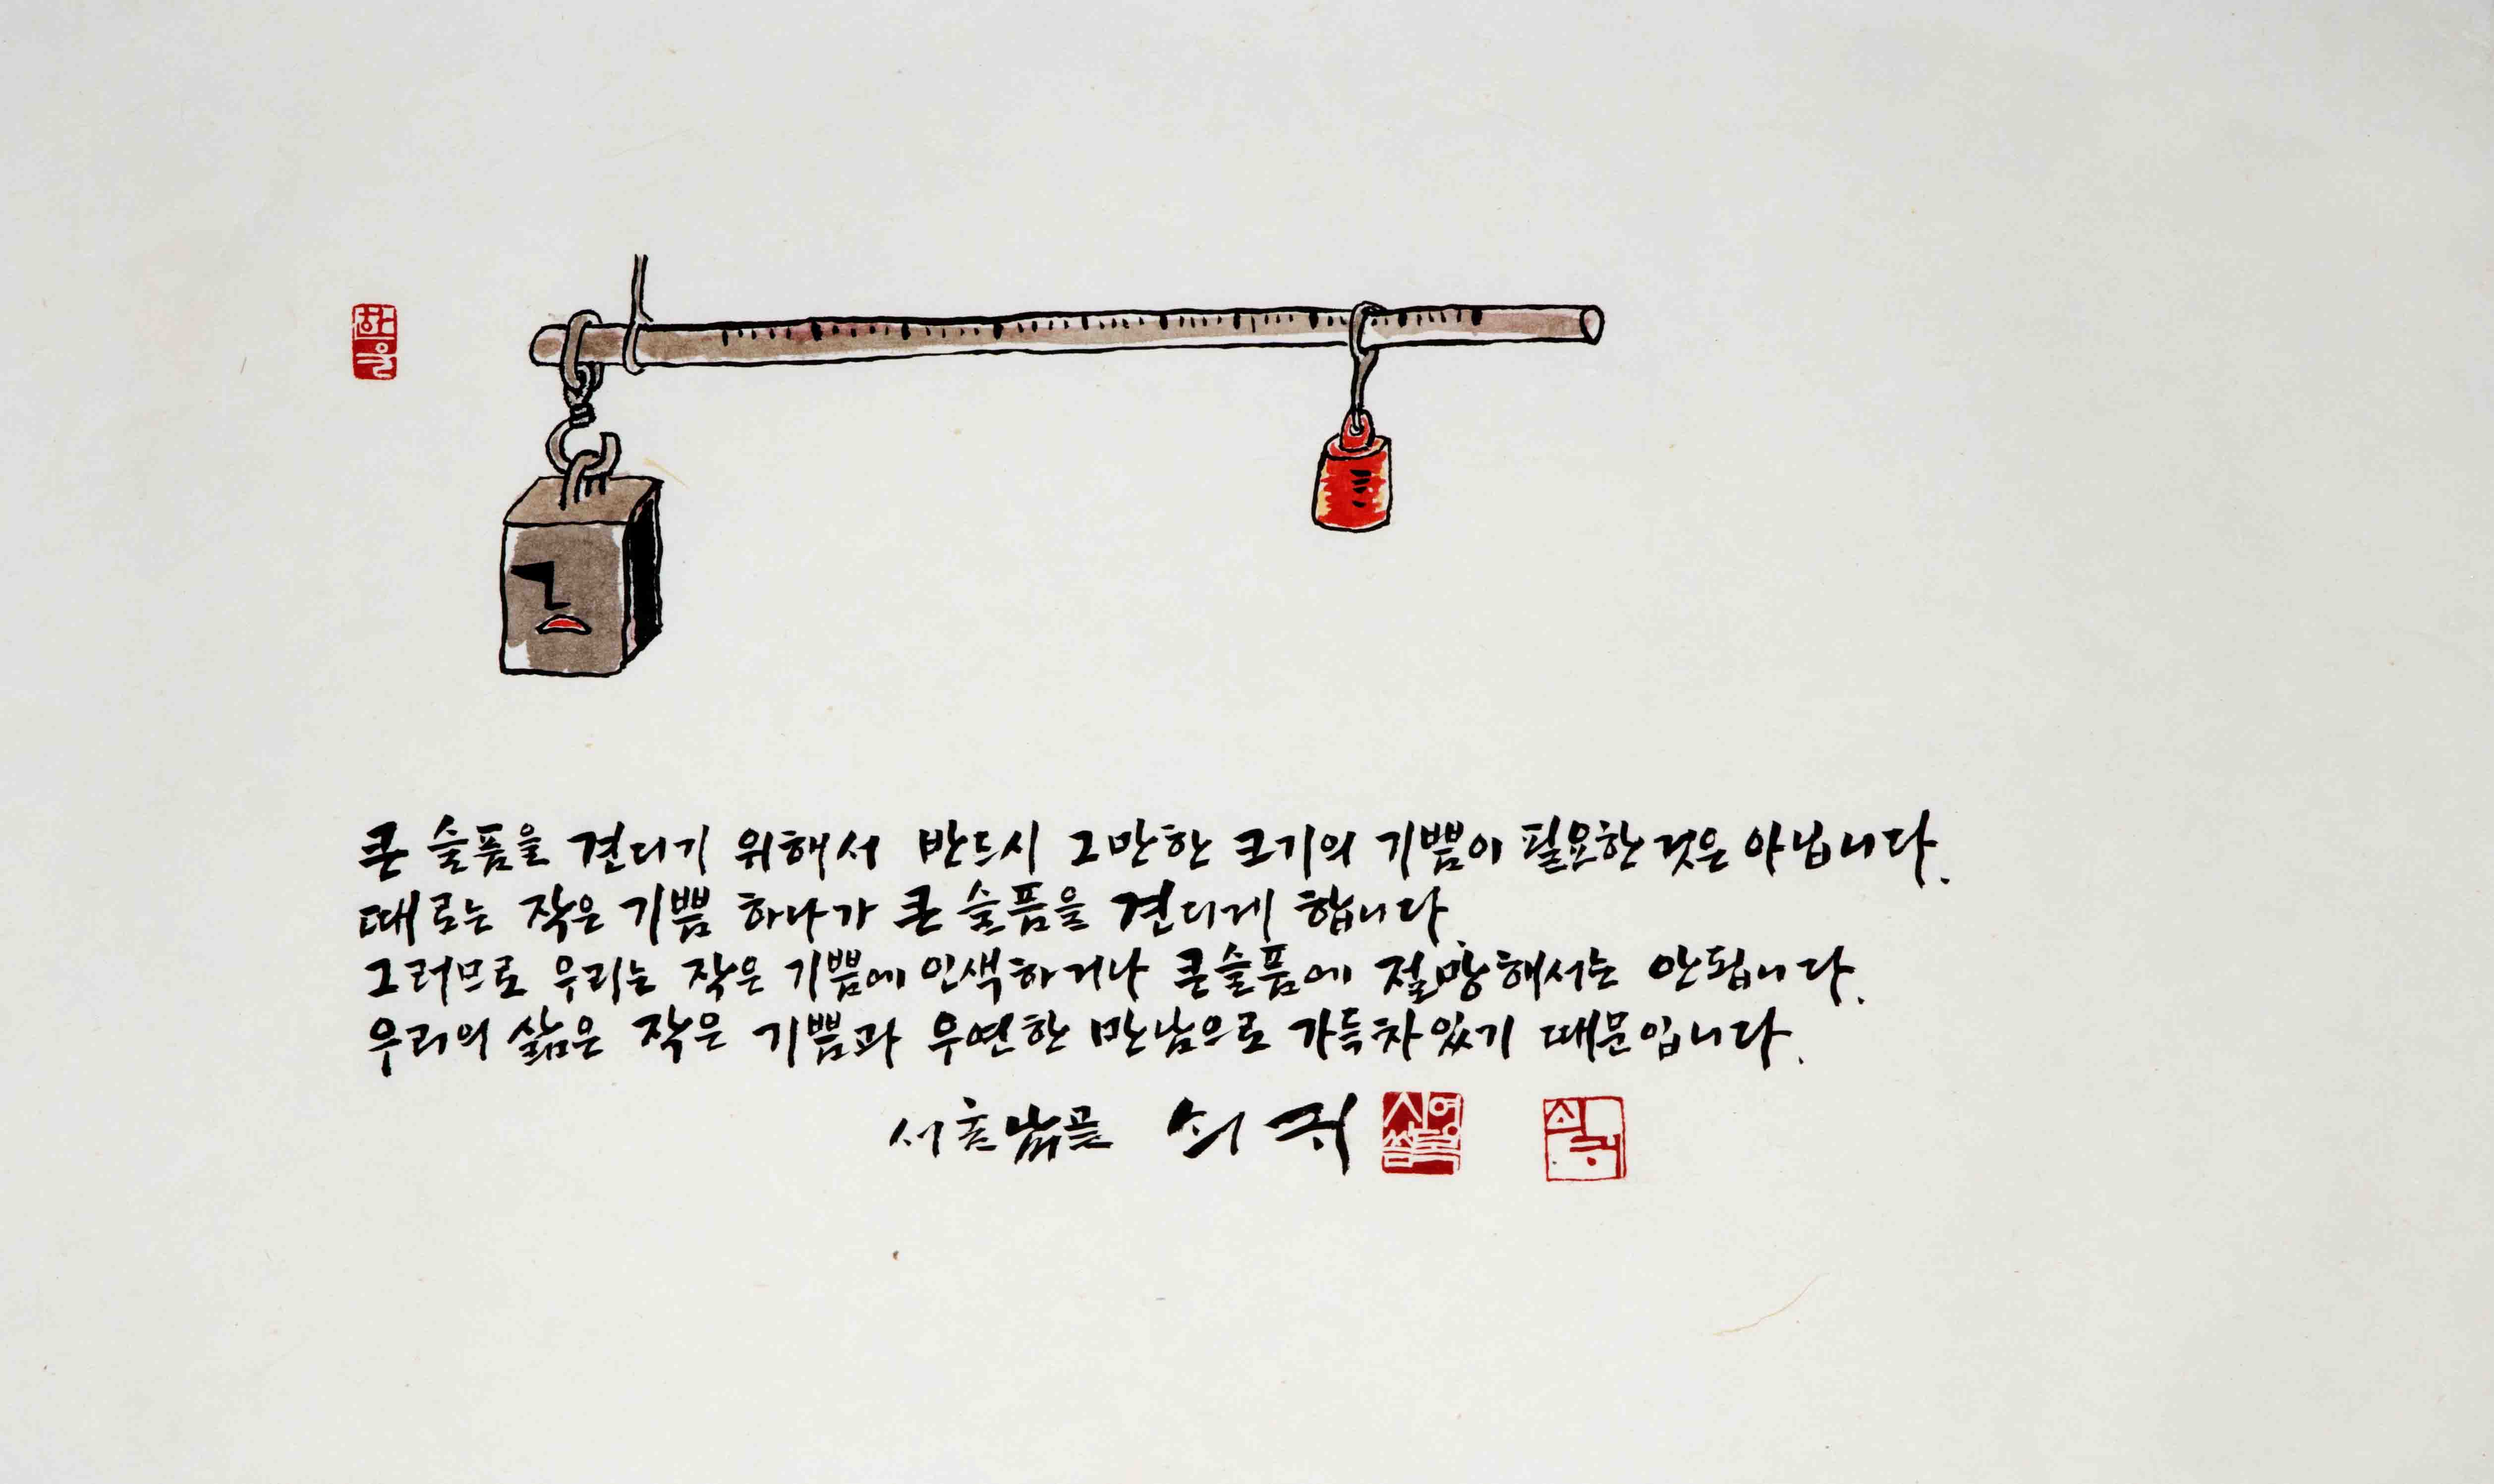 한울
큰 슬픔을 견디기 위해서 반드시 그만한 크기의 기쁨이 필요한 것은 아닙니다.
때로는 작은 기쁨 하나가 큰 슬픔을 견디게 합니다.
그러므로 우리는 작은 기쁨에 인색하거나 큰슬픔에 절망해서는 안됩니다.
우리의 삶은 작은 기쁨과 우연한 만남으로 가득차있기 때문입니다.
서촌 쇠귀
신영복 씀
쇠귀